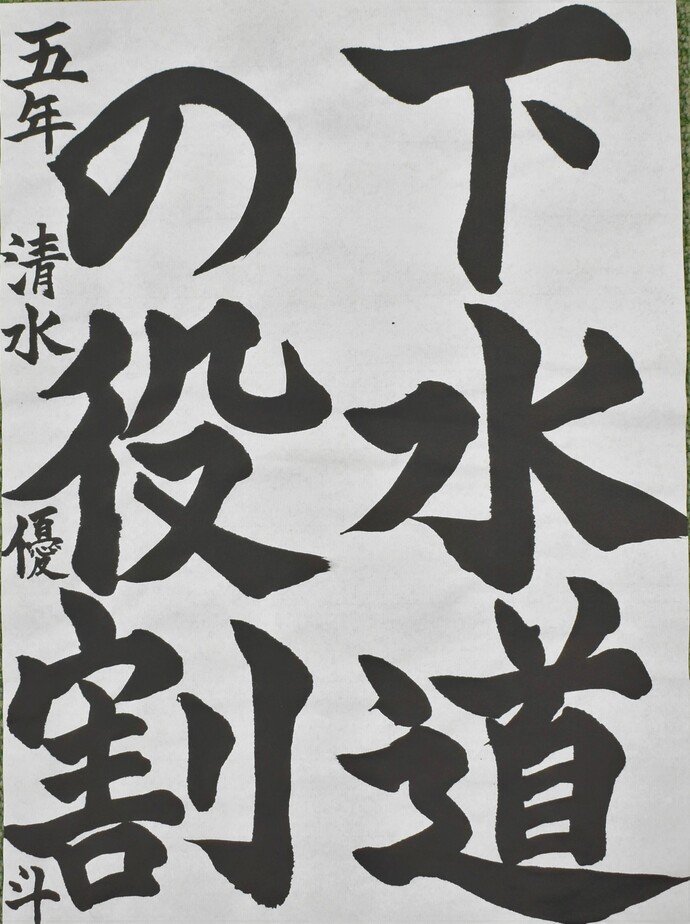 下水道
の役割
五年 清水 優斗